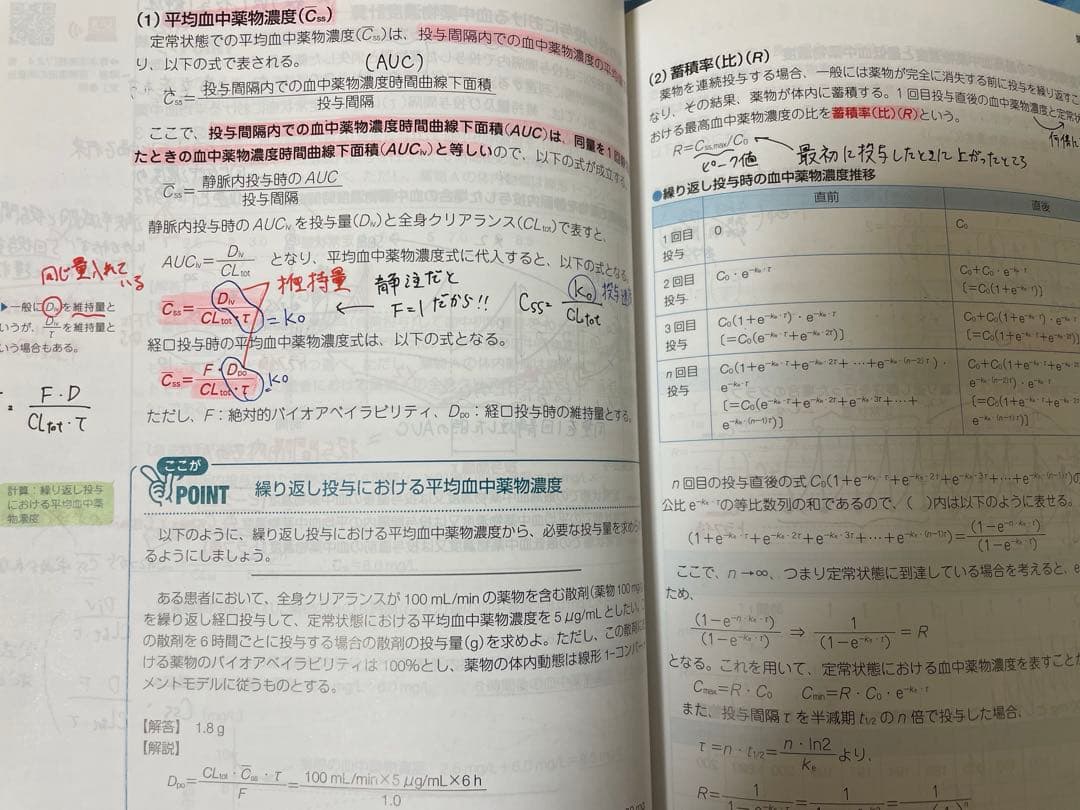 (1) 平均血中薬物濃度(C̅ss)
定常状態での平均血中薬物濃度(C̅ss)は、投与間隔内での血中薬物濃度の平均
り、以下の式で表される。
(AUC)
C̅ss=投与間隔内での血中薬物濃度時間曲線下面積/投与間隔
ここで、投与間隔内での血中薬物濃度時間曲線下面積(AUC)は、同量を1回
たときの血中薬物濃度時間曲線下面積(AUCiv)と等しいので、以下の式が成立する。
C̅ss=静脈内投与時のAUC/投与間隔
静脈内投与時のAUCivを投与量(Div)と全身クリアランス(CLtot)で表すと、
AUCiv=Div/CLtot となり、平均血中薬物濃度式に代入すると、以下の式となる。
同じ量入れている
▶一般にDivを維持量と
いうが、Div/τを維持量と
いう場合もある。
C̅ss=Div/CLtot・τ =k0
維持量
← 静注だと
F=1だから!!
Css=k0/CLtot
投与速
経口投与時の平均血中薬物濃度式は、以下の式となる。
C̅ss=F・Dpo/CLtot・τ k0
= F・D/CLtot・τ
ただし、F:絶対的バイオアベイラビリティ、Dpo:経口投与時の維持量とする。
ここが
POINT 繰り返し投与における平均血中薬物濃度
計算:繰り返し投与
における平均血中薬
物濃度
以下のように、繰り返し投与における平均血中薬物濃度から、必要な投与量を求め
るようにしましょう。
ある患者において、全身クリアランスが100 mL/minの薬物を含む散剤(薬物100 mg
を繰り返し経口投与して、定常状態における平均血中薬物濃度を5 μg/mLとしたい。
の散剤を6時間ごとに投与する場合の散剤の投与量(g)を求めよ。ただし、この散剤に
ける薬物のバイオアベイラビリティは100%とし、薬物の体内動態は線形1-コンパー
メントモデルに従うものとする。
【解答】 1.8 g
【解説】
Dpo=CLtot・C̅ss・τ/F=100 mL/min×5 μg/mL×6 h/1.0
(2) 蓄積率(比)(R)
薬物を連続投与する場合、一般には薬物が完全に消失する前に投与を繰り返すこ
なり、その結果、薬物が体内に蓄積する。1回目投与直後の血中薬物濃度と定常状
おける最高血中薬物濃度の比を蓄積率(比)(R)という。
R=Css,max/C0
ピーク値
最初に投与したときに上がったところ
●繰り返し投与時の血中薬物濃度推移
直前 直後
1回目投与 0 C0
2回目投与 C0・e^-ke・τ C0+C0・e^-ke・τ
〔=C0(1+e^-ke・τ)〕
3回目投与 C0(1+e^-ke・τ)・e^-ke・τ C0+C0(1+e^-ke・τ)・e^-ke・τ
〔=C0(e^-ke・τ+e^-ke・2τ)〕 〔=C0(1+e^-ke・τ+e^-ke・2τ)〕
n回目投与 C0(1+e^-ke・τ+e^-ke・2τ+…+e^-ke・(n-2)τ)・ C0+C0(1+e^-ke・τ+e^-ke・2τ+…+
e^-ke・τ e^-ke・(n-2)τ)・e^-ke・τ
〔=C0(e^-ke・τ+e^-ke・2τ+e^-ke・3τ+…+ 〔=C0(1+e^-ke・τ+e^-ke・2τ+…+
e^-ke・(n-1)τ)〕 e^-ke・(n-1)τ)〕
n回目の投与直後の式C0(1+e^-ke・τ+e^-ke・2τ+e^-ke・3τ+…+e^-ke・(n-1)τ)の
公比e^-ke・τの等比数列の和であるので、( )内は以下のように表せる。
(1+e^-ke・τ+e^-ke・2τ+e^-ke・3τ+…+e^-ke・(n-1)τ)=(1-e^-n・ke・τ)/(1-e^-ke・τ)
ここで、n→∞、つまり定常状態に到達している場合を考えると、e
ため、
(1-e^-n・ke・τ)/(1-e^-ke・τ) ⇒ 1/(1-e^-ke・τ) = R
となる。これを用いて、定常状態における血中薬物濃度を表すことが
Cmax=R・C0 Cmin=R・C0・e^-ke・τ
また、投与間隔τを半減期t1/2のn倍で投与した場合、
τ=n・t1/2=n・ln2/ke より、
R=1/1-e^-ke・τ=1